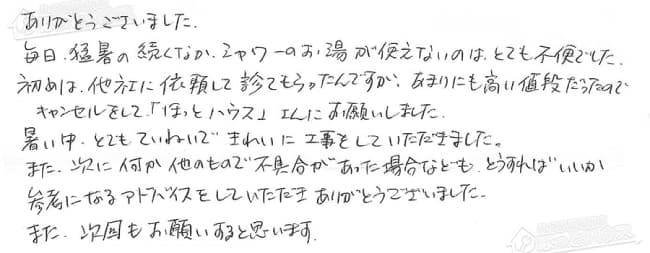 ありがとうございました.
毎日.猛暑の続くなか.シャワーのお湯が使えないのは.とても不便でした.
初めは.他社に依頼して診てもらったんですが.あまりにも高い値段だったので
キャンセルをして.「ほっとハウス」さんにお願いしました.
暑い中.とてもていねいできれいに工事をしていただきました。
また.次に何か他のもので不具合があった場合なども.どうすればいいか
参考になるアドバイスをしていただきありがとうございました.
また.次回もお願いすると思います.